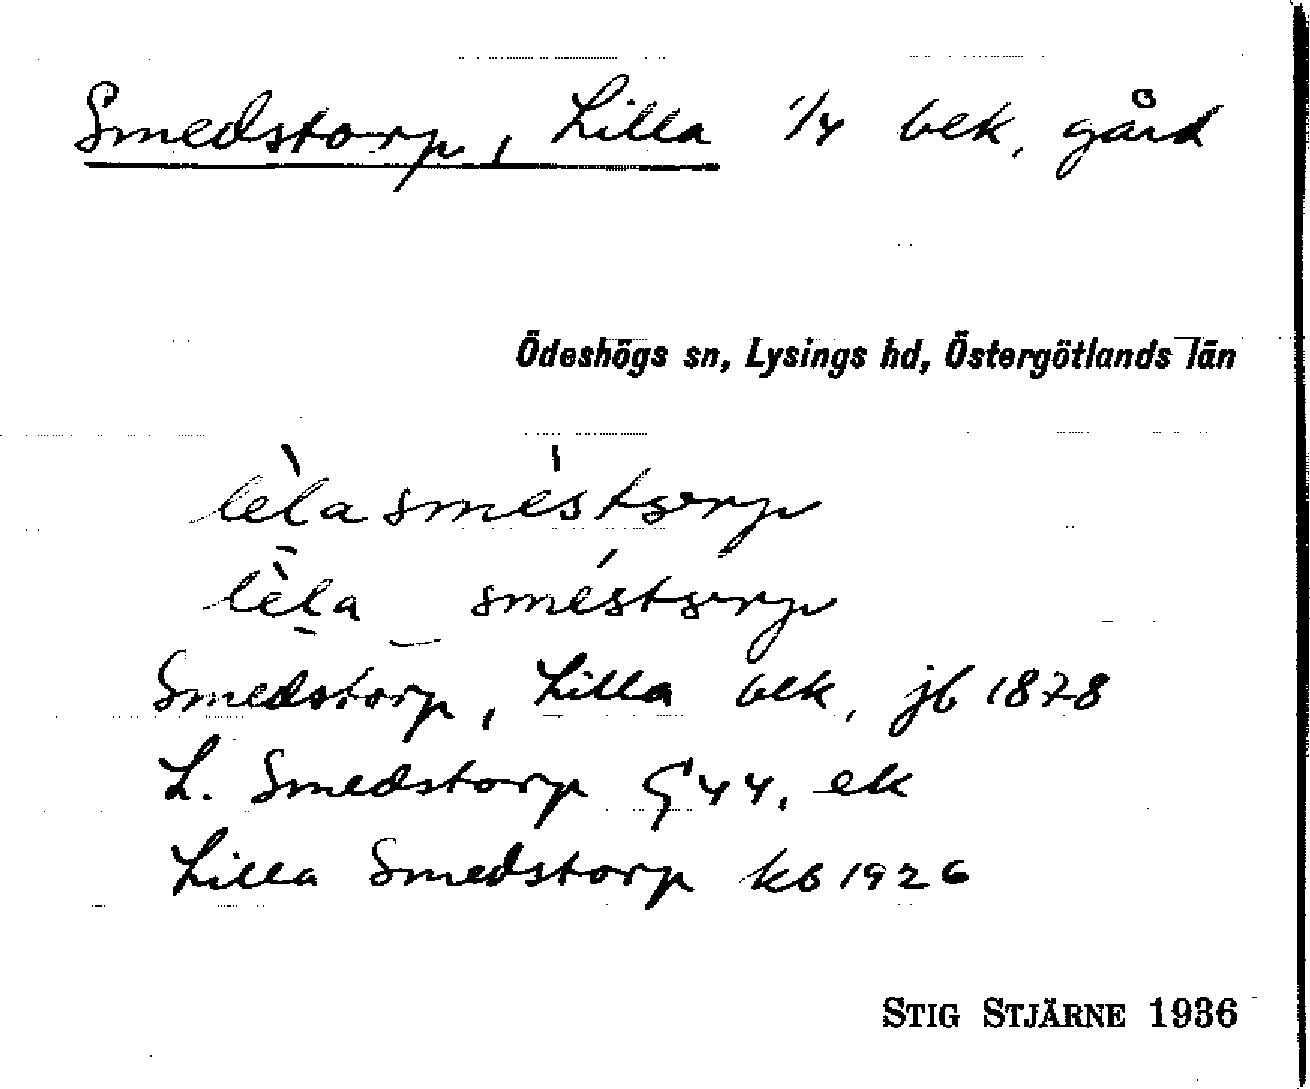 Smedstorp, Lilla 1/4 bek. gård
Ödeshögs sn, Lysings hd, Östergötlands län
lèla sméstsorp
lèla sméstsorp
Smedstorp, Lilla bek. jb 1878
L. Smedstorp G 44. ek
Lilla Smedstorp kb 1926
STIG STJÄRNE 1936